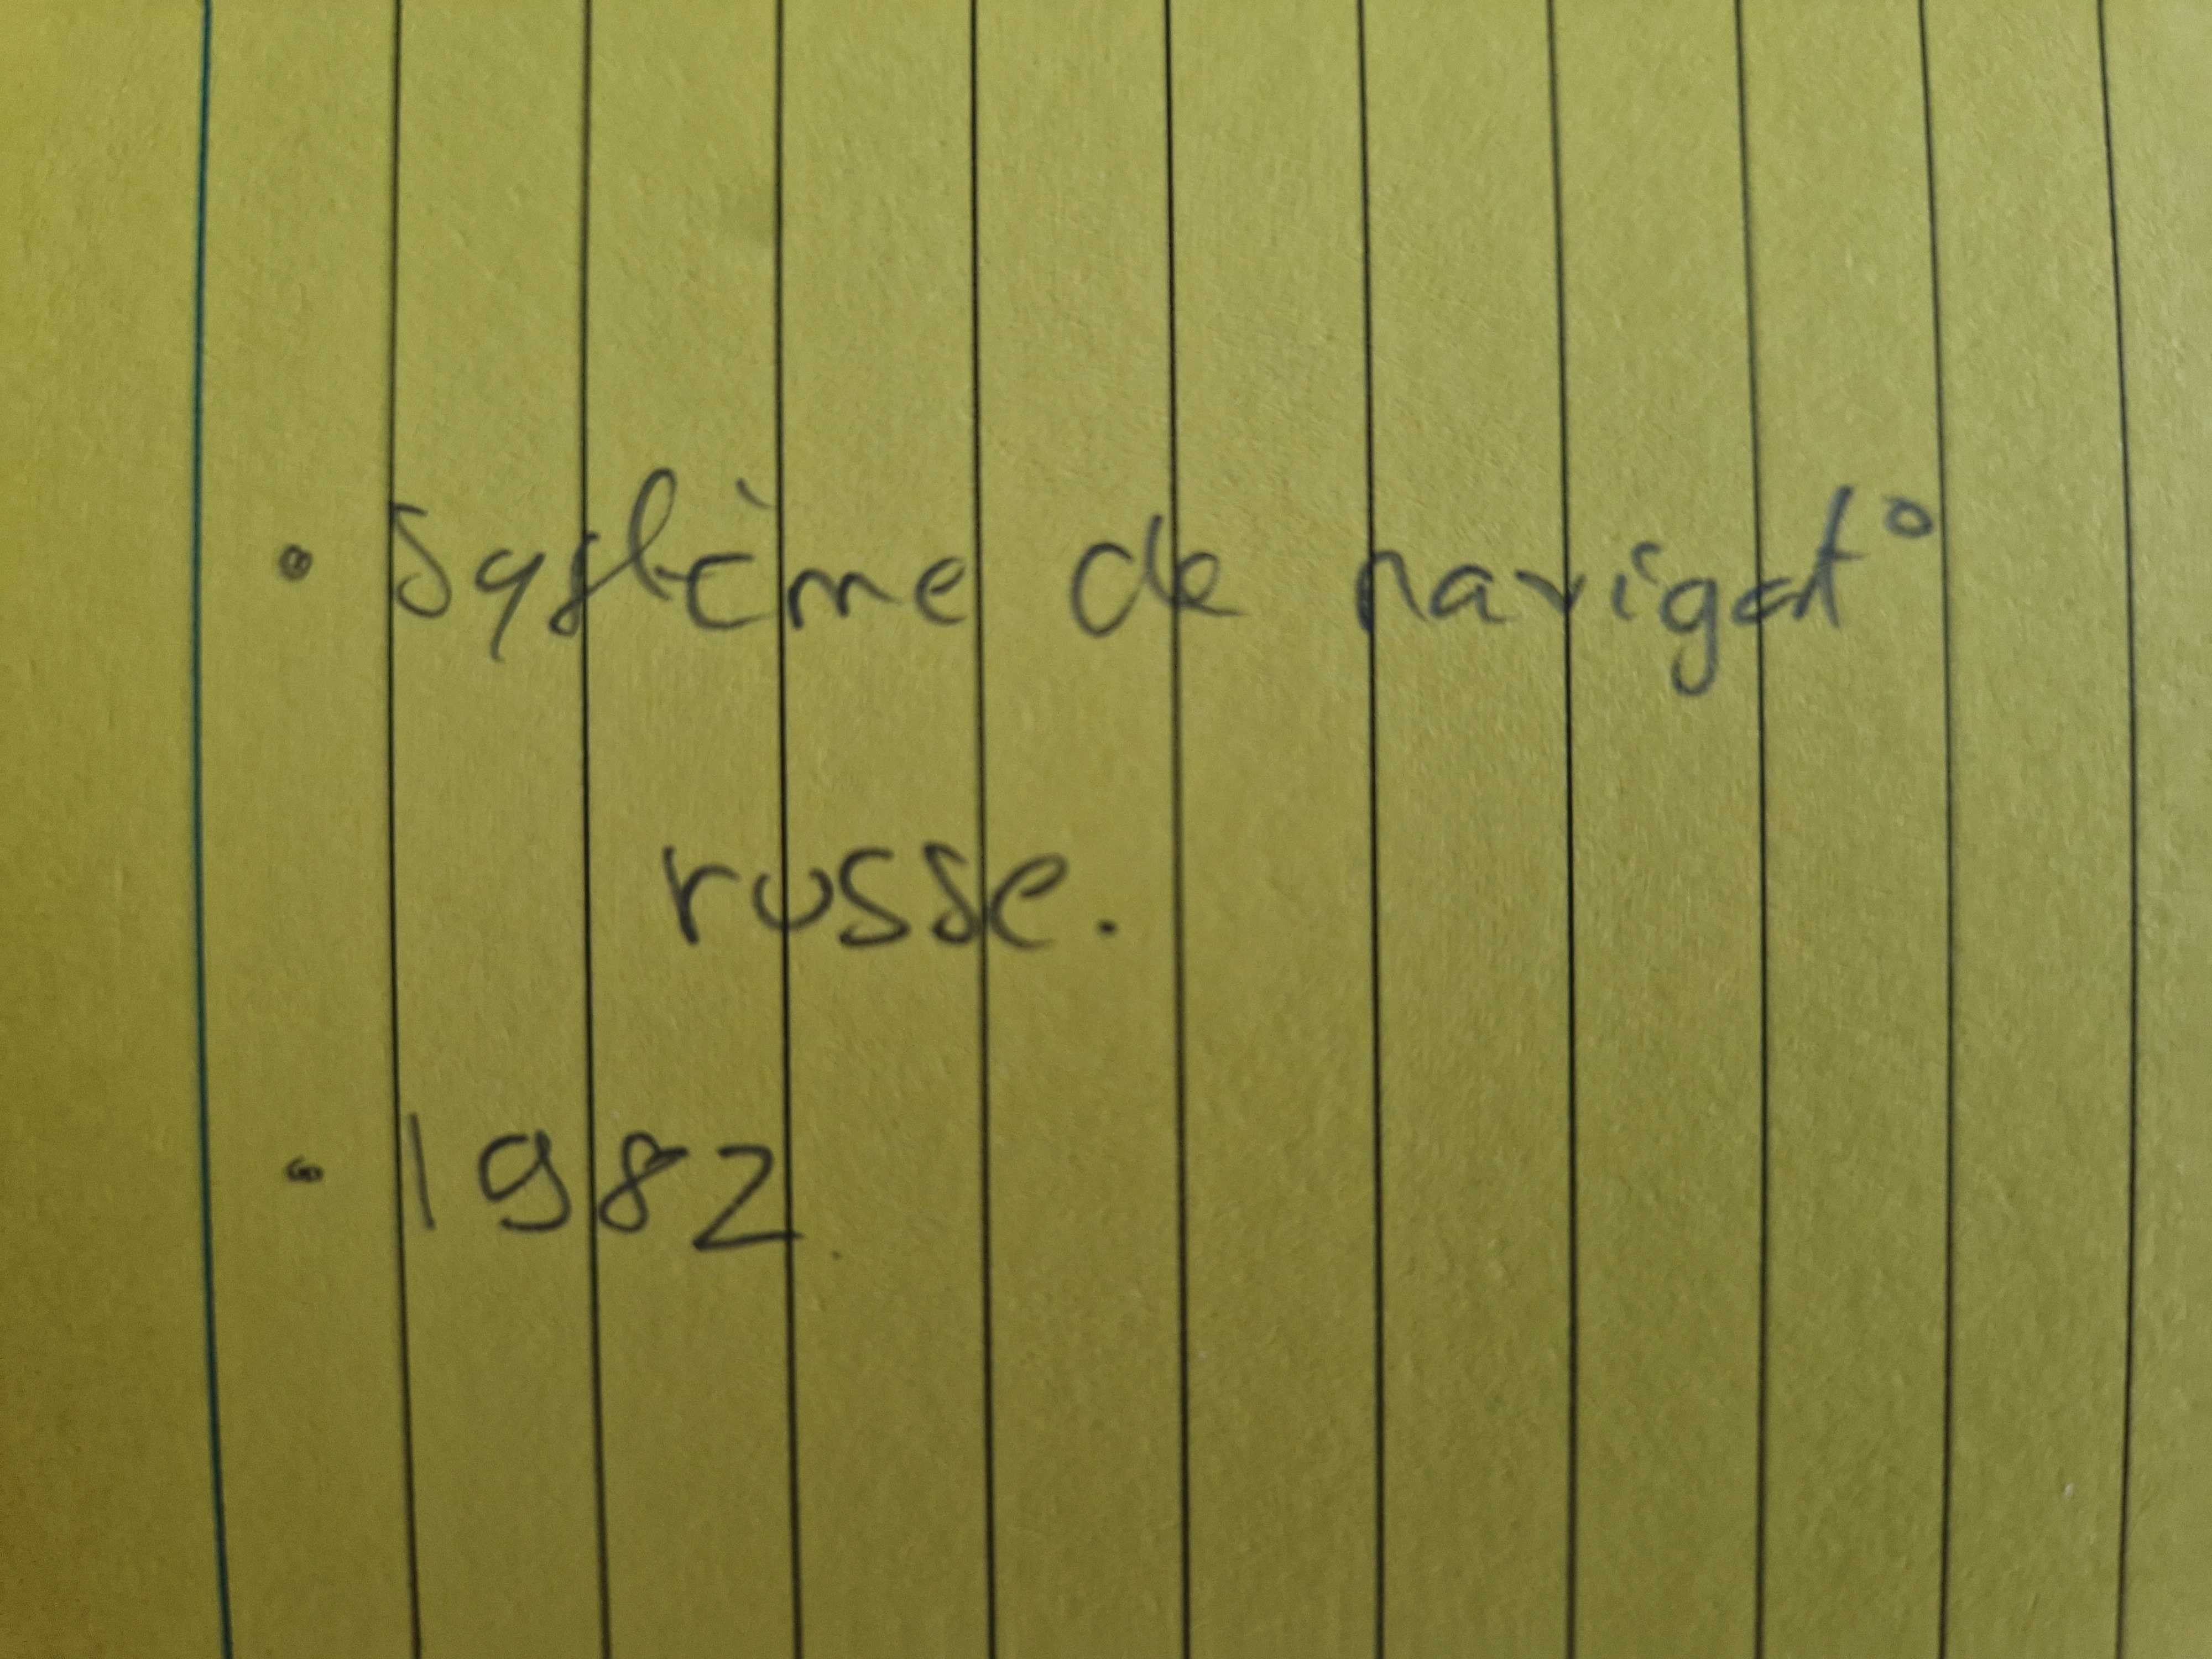 • Système de navigat°
russe.
• 1982.